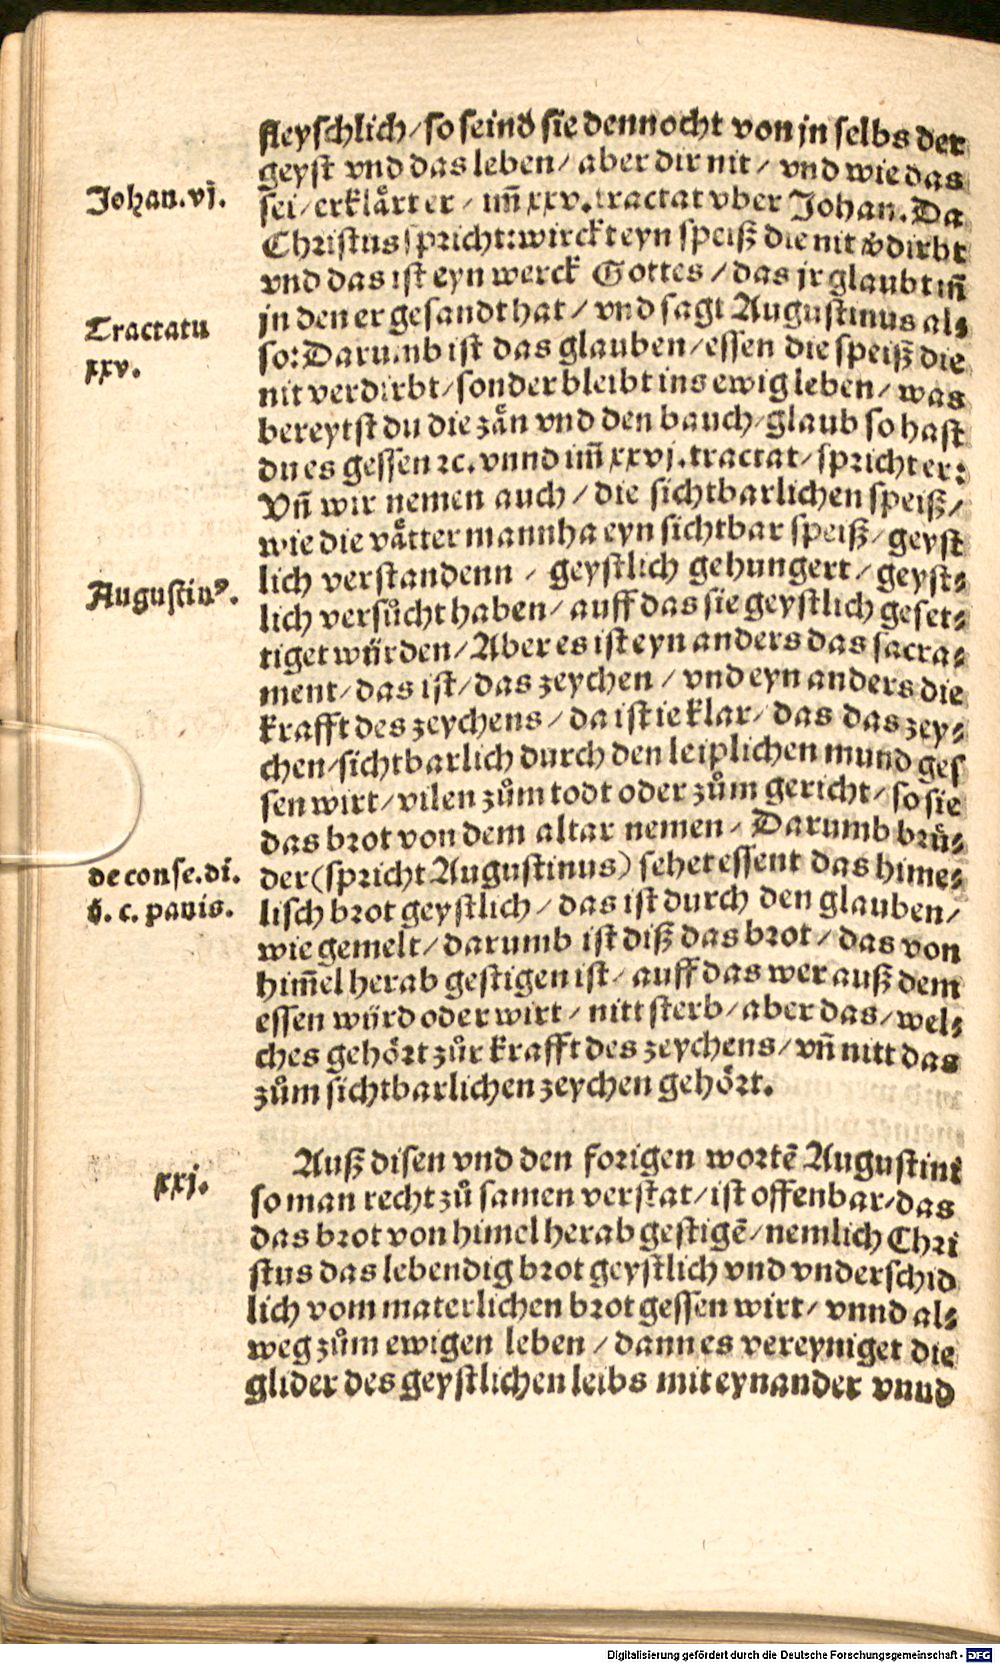 fleyschlich/ so seind sie dennocht von jn selbs der
geyst vnd das leben/ aber dir nit/ vnd wie das
Johan. vj.
sei/ erklårt er/ im̄ xxv. tractat vber Johan. Da
Christus spricht: wirckt eyn speiß die nit v̊dirbt
vnd das ist eyn werck Gottes/ das jr glaubt im̄
Tractatu
jn den er gesandt hat/ vnd sagt Augustinus al⸗
so: Darumb ist das glauben/ essen die speiß die
xxv.
nit verdirbt/ sonder bleibt ins ewig leben/ was
bereytst du die zån vnd den bauch/ glaub so hast
du es gessen ꝛc. vnnd im̄ xxvj. tractat/ spricht er:
Vn̄ wir nemen auch/ die sichtbarlichen speiß/
wie die våtter mannha eyn sichtbar speiß/ geyst
Augustinꝰ.
lich verstandenn/ geystlich gehungert/ geyst⸗
lich versůcht haben/ auff das sie geystlich geset⸗
tiget würden/ Aber es ist eyn anders das sacra⸗
ment/ das ist/ das zeychen/ vnd eyn anders die
krafft des zeychens/ da ist ie klar/ das das zey⸗
chen/ sichtbarlich durch den leiplichen mund ges
sen wirt/ vilen zům todt oder zům gericht/ so sie
das brot von dem altar nemen/ Darumb brů⸗
de conse. di.
der (spricht Augustinus) sehet essent das hime⸗
c. panis.
lisch brot geystlich/ das ist durch den glauben/
wie gemelt/ darumb ist diß das brot/ das von
him̄el herab gestigen ist/ auff das wer auß dem
essen würd oder wirt/ nitt sterb/ aber das/ wel⸗
ches gehört zůr krafft des zeychens/ vn̄ nitt das
zům sichtbarlichen zeychen gehört.
xxj.
Auß disen vnd den forigen wortē Augustini
so man recht zů samen verstat/ ist offenbar/ das
das brot von himel herab gestigē/ nemlich Chri
stus das lebendig brot geystlich vnd vnderschid
lich vom materlichen brot gessen wirt/ vnnd al⸗
weg zům ewigen leben/ dann es vereyniget die
glider des geystlichen leibs mit eynander vnnd
Digitalisierung gefördert durch die Deutsche Forschungsgemeinschaft - DFG